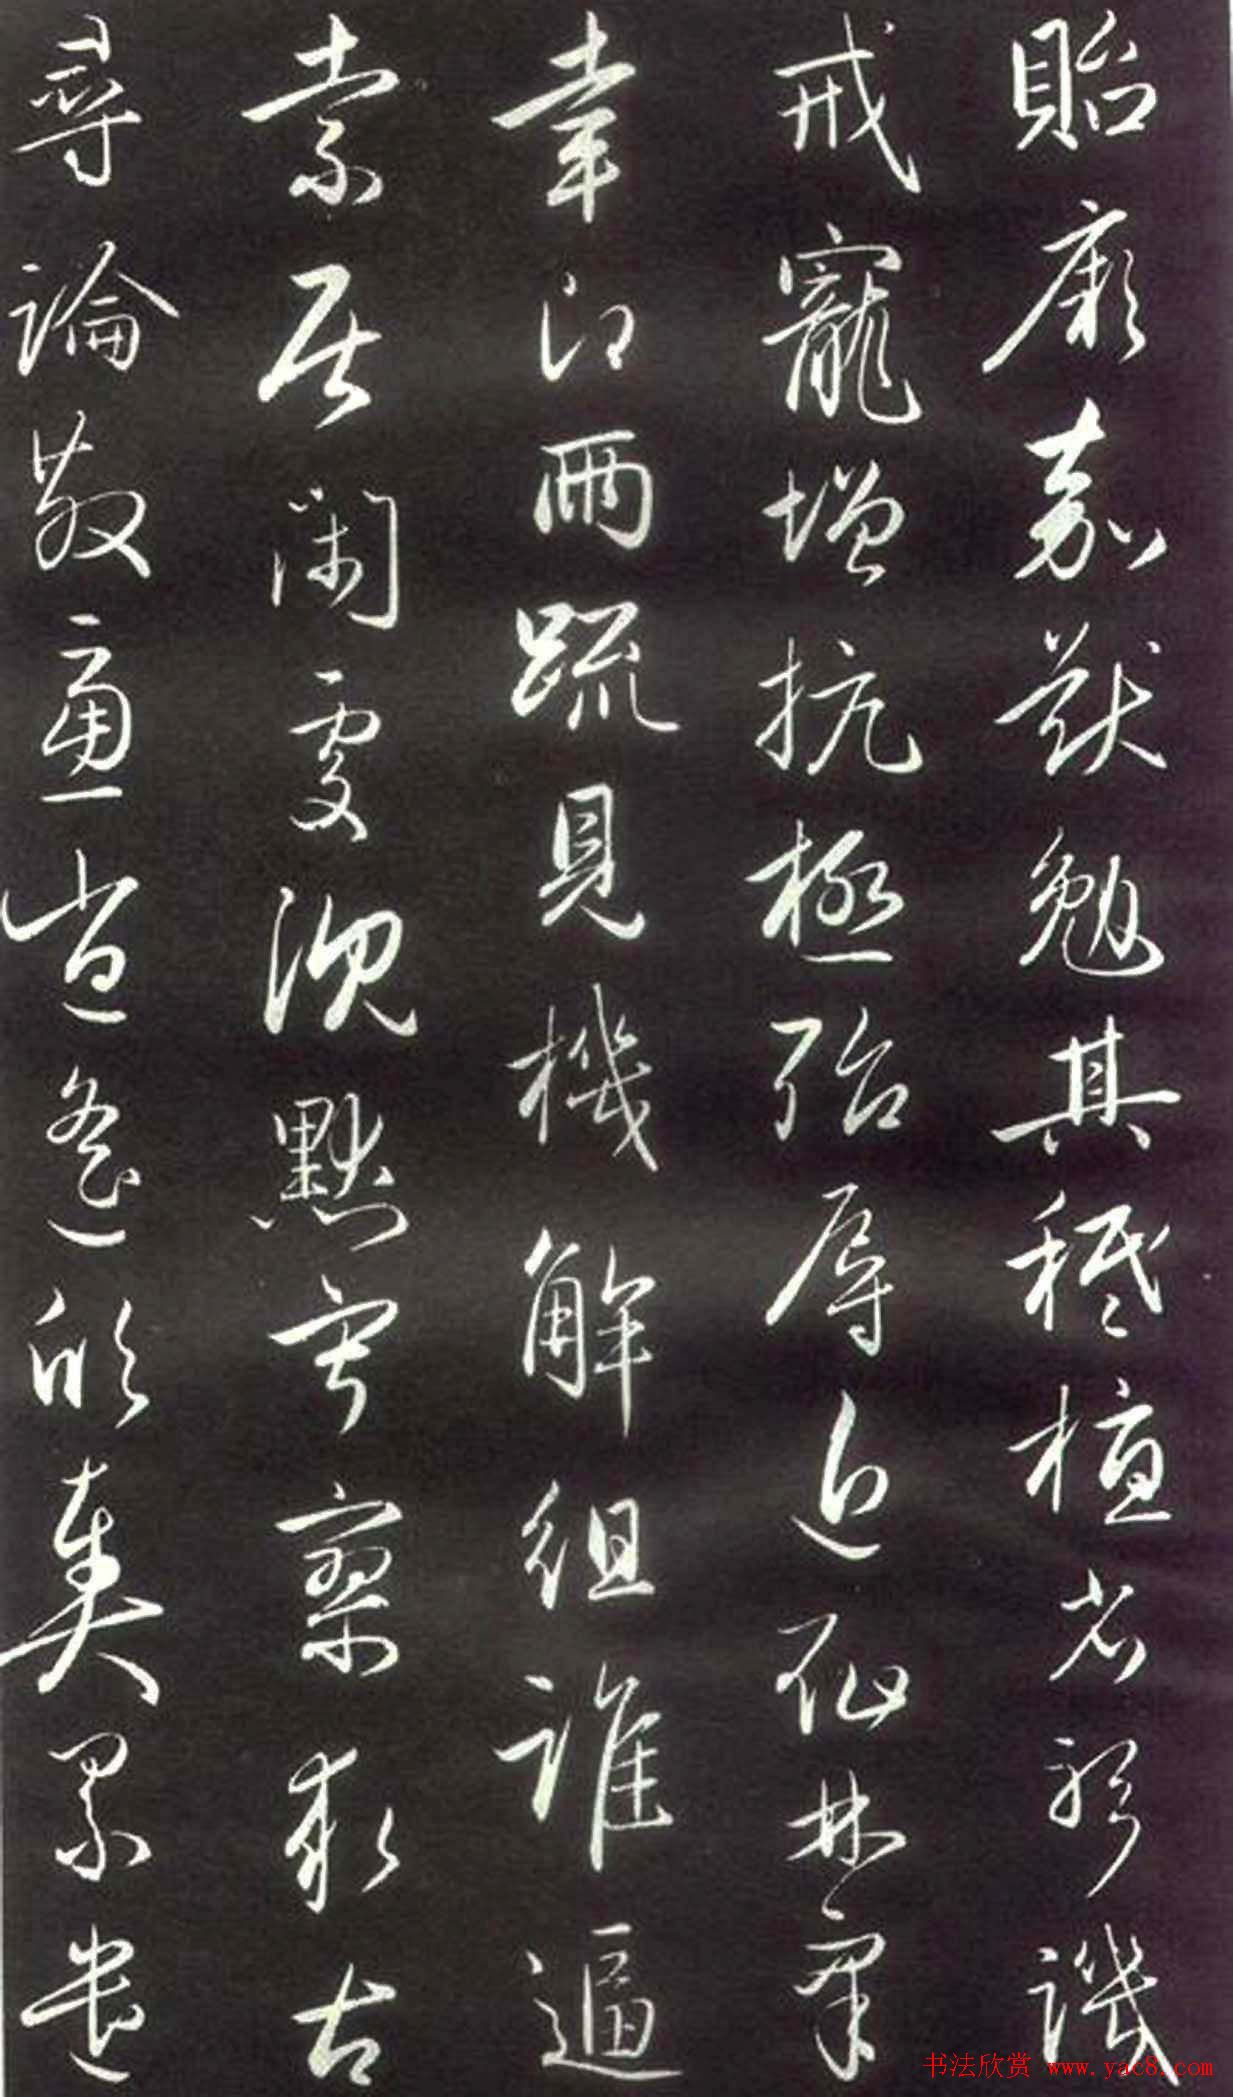 貽厥嘉猷勉其祗植省躬譏
戒寵增抗極殆辱近耻林皋
幸即兩疏見機解組誰逼
索居閑處沉默寂寥求古
尋論散慮逍遙欣奏累遣
书法欣赏 www.yac8.com